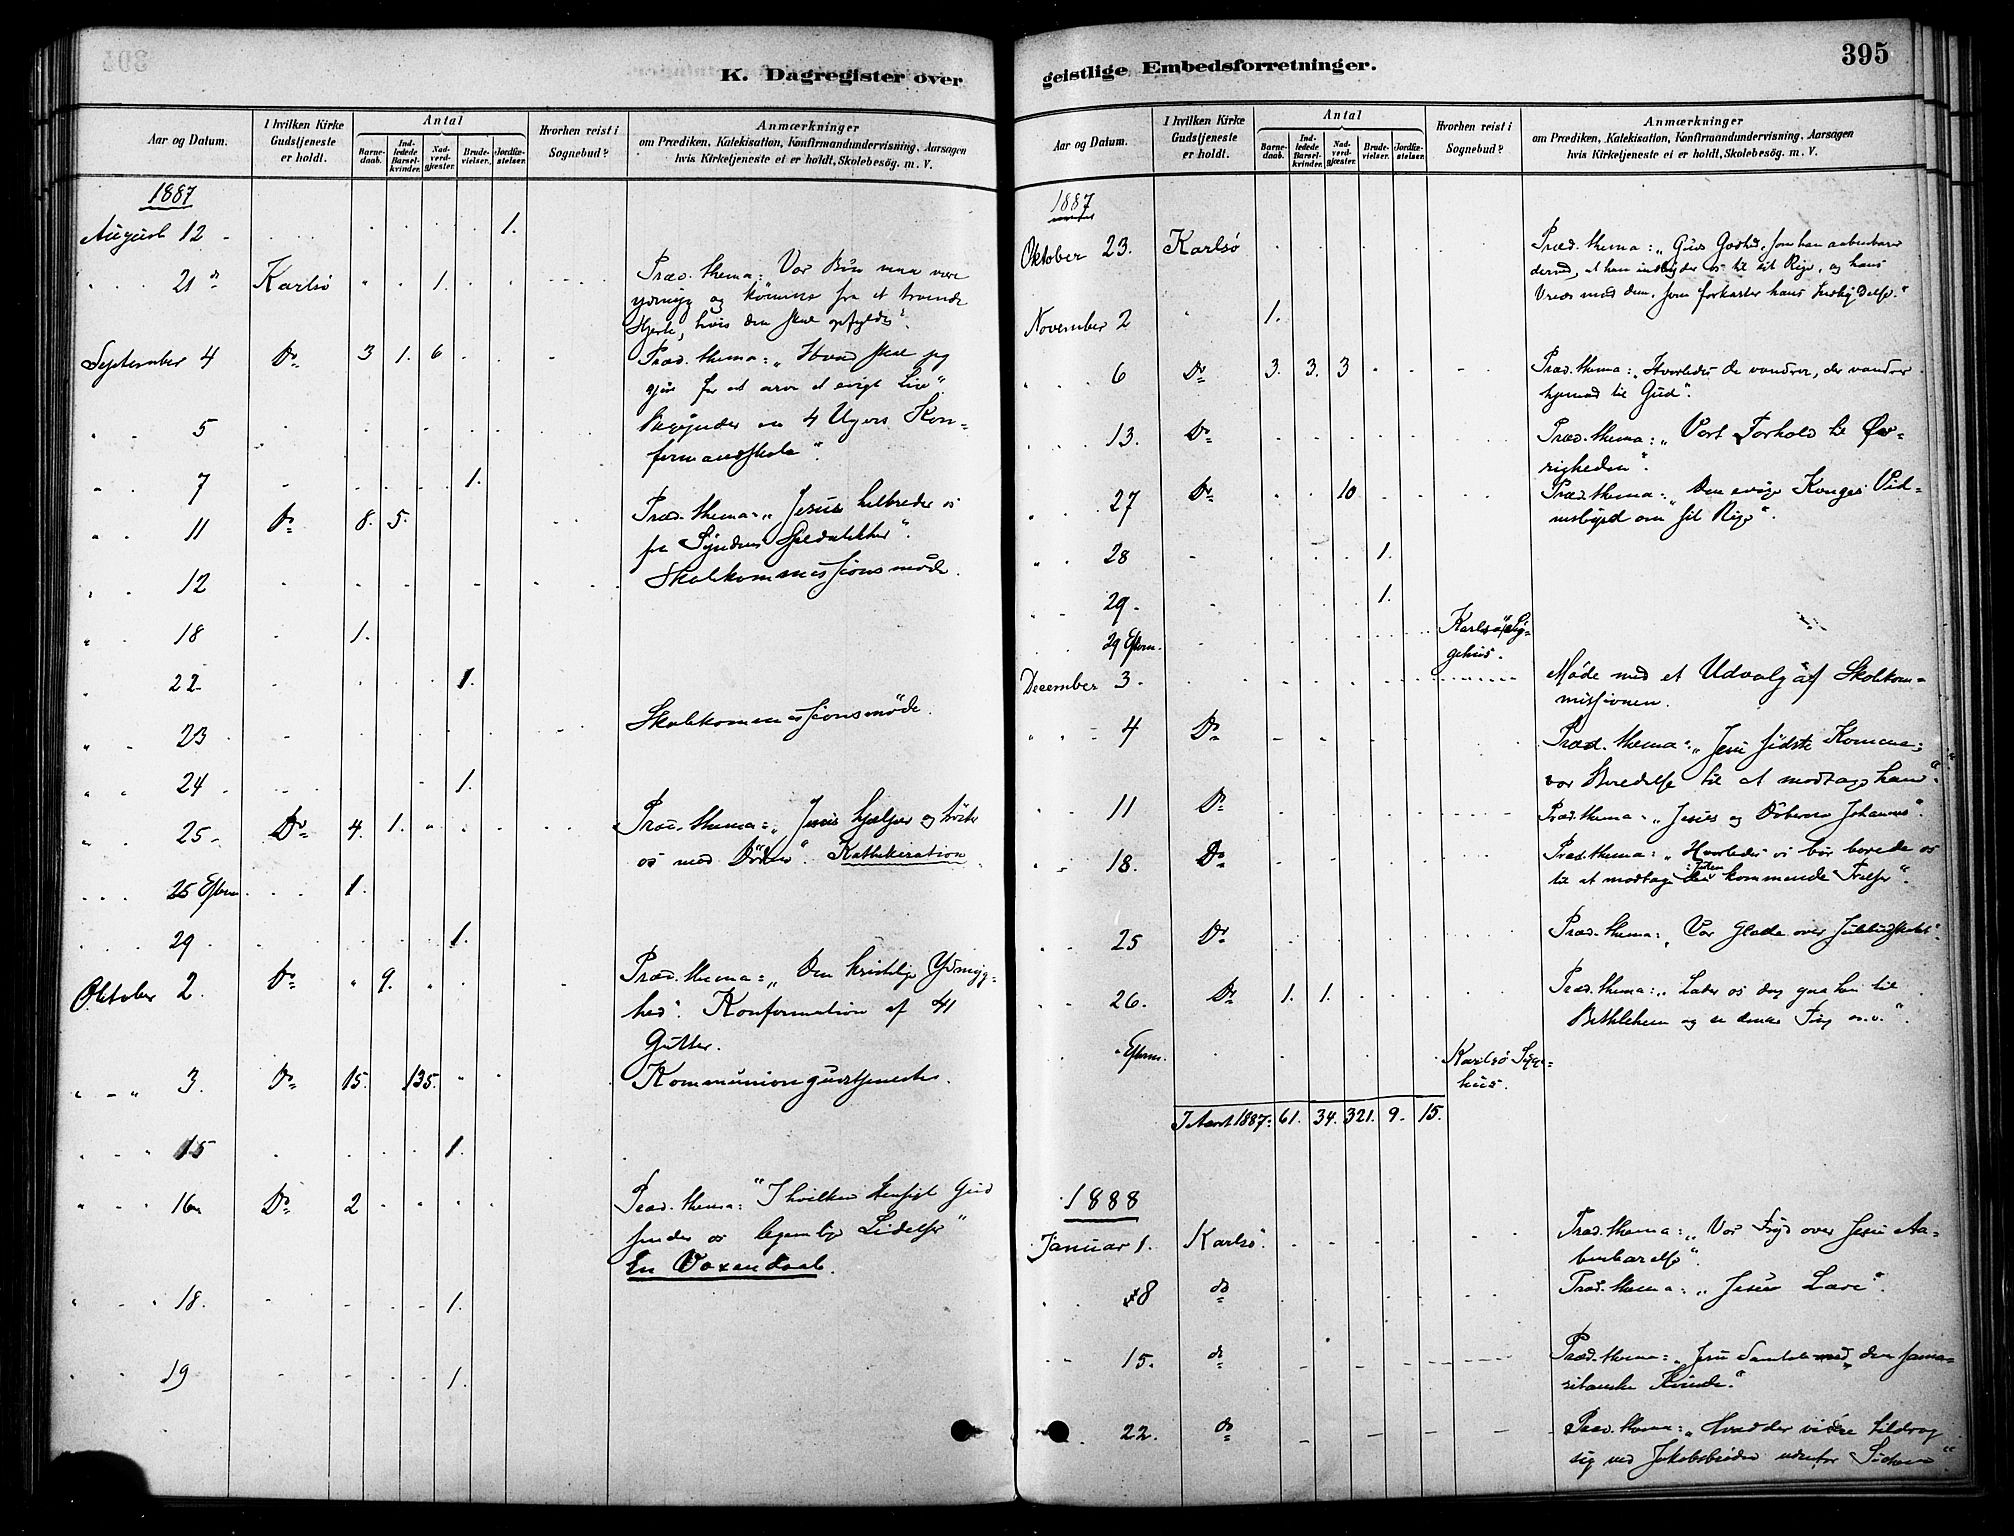 K. Dagregister over
Aar og Datum.
I hvilken Kirke Gudstjeneste er holdt.
Antal
Barnedaab.
Indledede Barselkvinder.
Nadverdgjæster.
Brudevielser.
Jordfæstelser.
Hvorhen reist i Sognebud?
Anmærkninger
om Prædiken, Katekisation, Konfirmandundervisning, Aarsagen
hvis Kirketjeneste ei er holdt, Skolebesøg. m. V.
1887
August 12 1.
21 Karlsø 1. Præd. thema: Vor Bøn maa være
ydmyg og komme fra et troende
Hjerte, hvis den skal opfyldes".
September 4 Do 3 1. 6 Præd. thema: "Hvad skal jeg
gjøre for at arve et evigt Liv"
5 Begynder en 4 Ugers Kon-
firmandskole".
7 1.
11 Do 8. 5. Præd. thema: "Jesus helbreder os
fra Syndens Spedalskhed".
12 Skolekommissionsmøde.
18 1.
22 1.
23 Skolekommissionsmøde.
24 1.
25 Do 4. 1. Præd. thema: "Jesus hjælper og trøster
os mod Døden". Kathekisation
25 Efterm 1.
29 1.
Oktober 2. Do 9. Præd. thema: "Den kristelige Ydmyg-
hed". Konfirmation af 41
Gutter.
3. Do 15. 135. Kommuniongudstjeneste.
15 1.
16 Do 2 Præd. thema: "I hvilken Hensigt Gud
sender os legemlige Lidelser"
En Voxendaab.
18. 1.
19 1.
geistlige Embedsforretninger.
395
Aar og Datum.
I hvilken Kirke Gudstjeneste er holdt.
Antal
Barnedaab.
Indledede Barselkvinder.
Nadverdgjæster.
Brudevielser.
Jordfæstelser.
Hvorhen reist i Sognebud?
Anmærkninger
om Prædiken, Katekisation, Konfirmandundervisning, Aarsagen
hvis Kirketjeneste ei er holdt, Skolebesøg. m. V.
1887
Oktober 23. Karlsø Præd. thema: "Guds Godhed, som han aabenbarer
derved, at han indbyder os til sit Rige, og hans
Vrede mod dem, som forkaster hans Indbydelse."
November 2 1.
6 Do 3. 3. 3 Præd. thema: "Hvorledes de vandrer, der vandrer
hjemad til Gud".
13. Do Præd. thema: "Vort Forhold til Øv-
righeden".
27 Do 10 Præd. thema: "Den evige Konges Vid-
nesbyrd om sit Rige".
28 1.
29 1.
29 Efterm. Karlsø Sy-
gehus.
December 3. Møde med et Udvalg af Skolekom-
missionen.
4 Do Præd. thema: "Jesu sidste Komme;
vor Beredelse til at modtage ham".
11 Do Præd. thema: "Jesus og Døberen Johannes".
18. Do Præd. thema: "Hvorledes vi bør berede os
til at modtage den kommende Frelser".
25 Do Præd. thema: "Vor Glæde over Julebudskabet".
26. Do 1. 1. Præd. thema: "Lader os dog gaa hen til
Bethlehem og se denne Ting o.s.v.".
Efterm. Karlsø Syge-
hus.
I Aaret 1887: 61. 34. 321. 9. 15.
1888
Januar 1. Karlsø. Præd. thema: "Vor Fryd over Jesu Aa-
benbarelse".
8 do Præd. thema: "Jesu Lære".
15. do Præd. thema: "Jesu Samtale med den sama-
ritanske Kvinde."
22. do Præd. thema: "Hvad der videre tildrog
sig ved Jakobsbrønden udenfor Sichem"